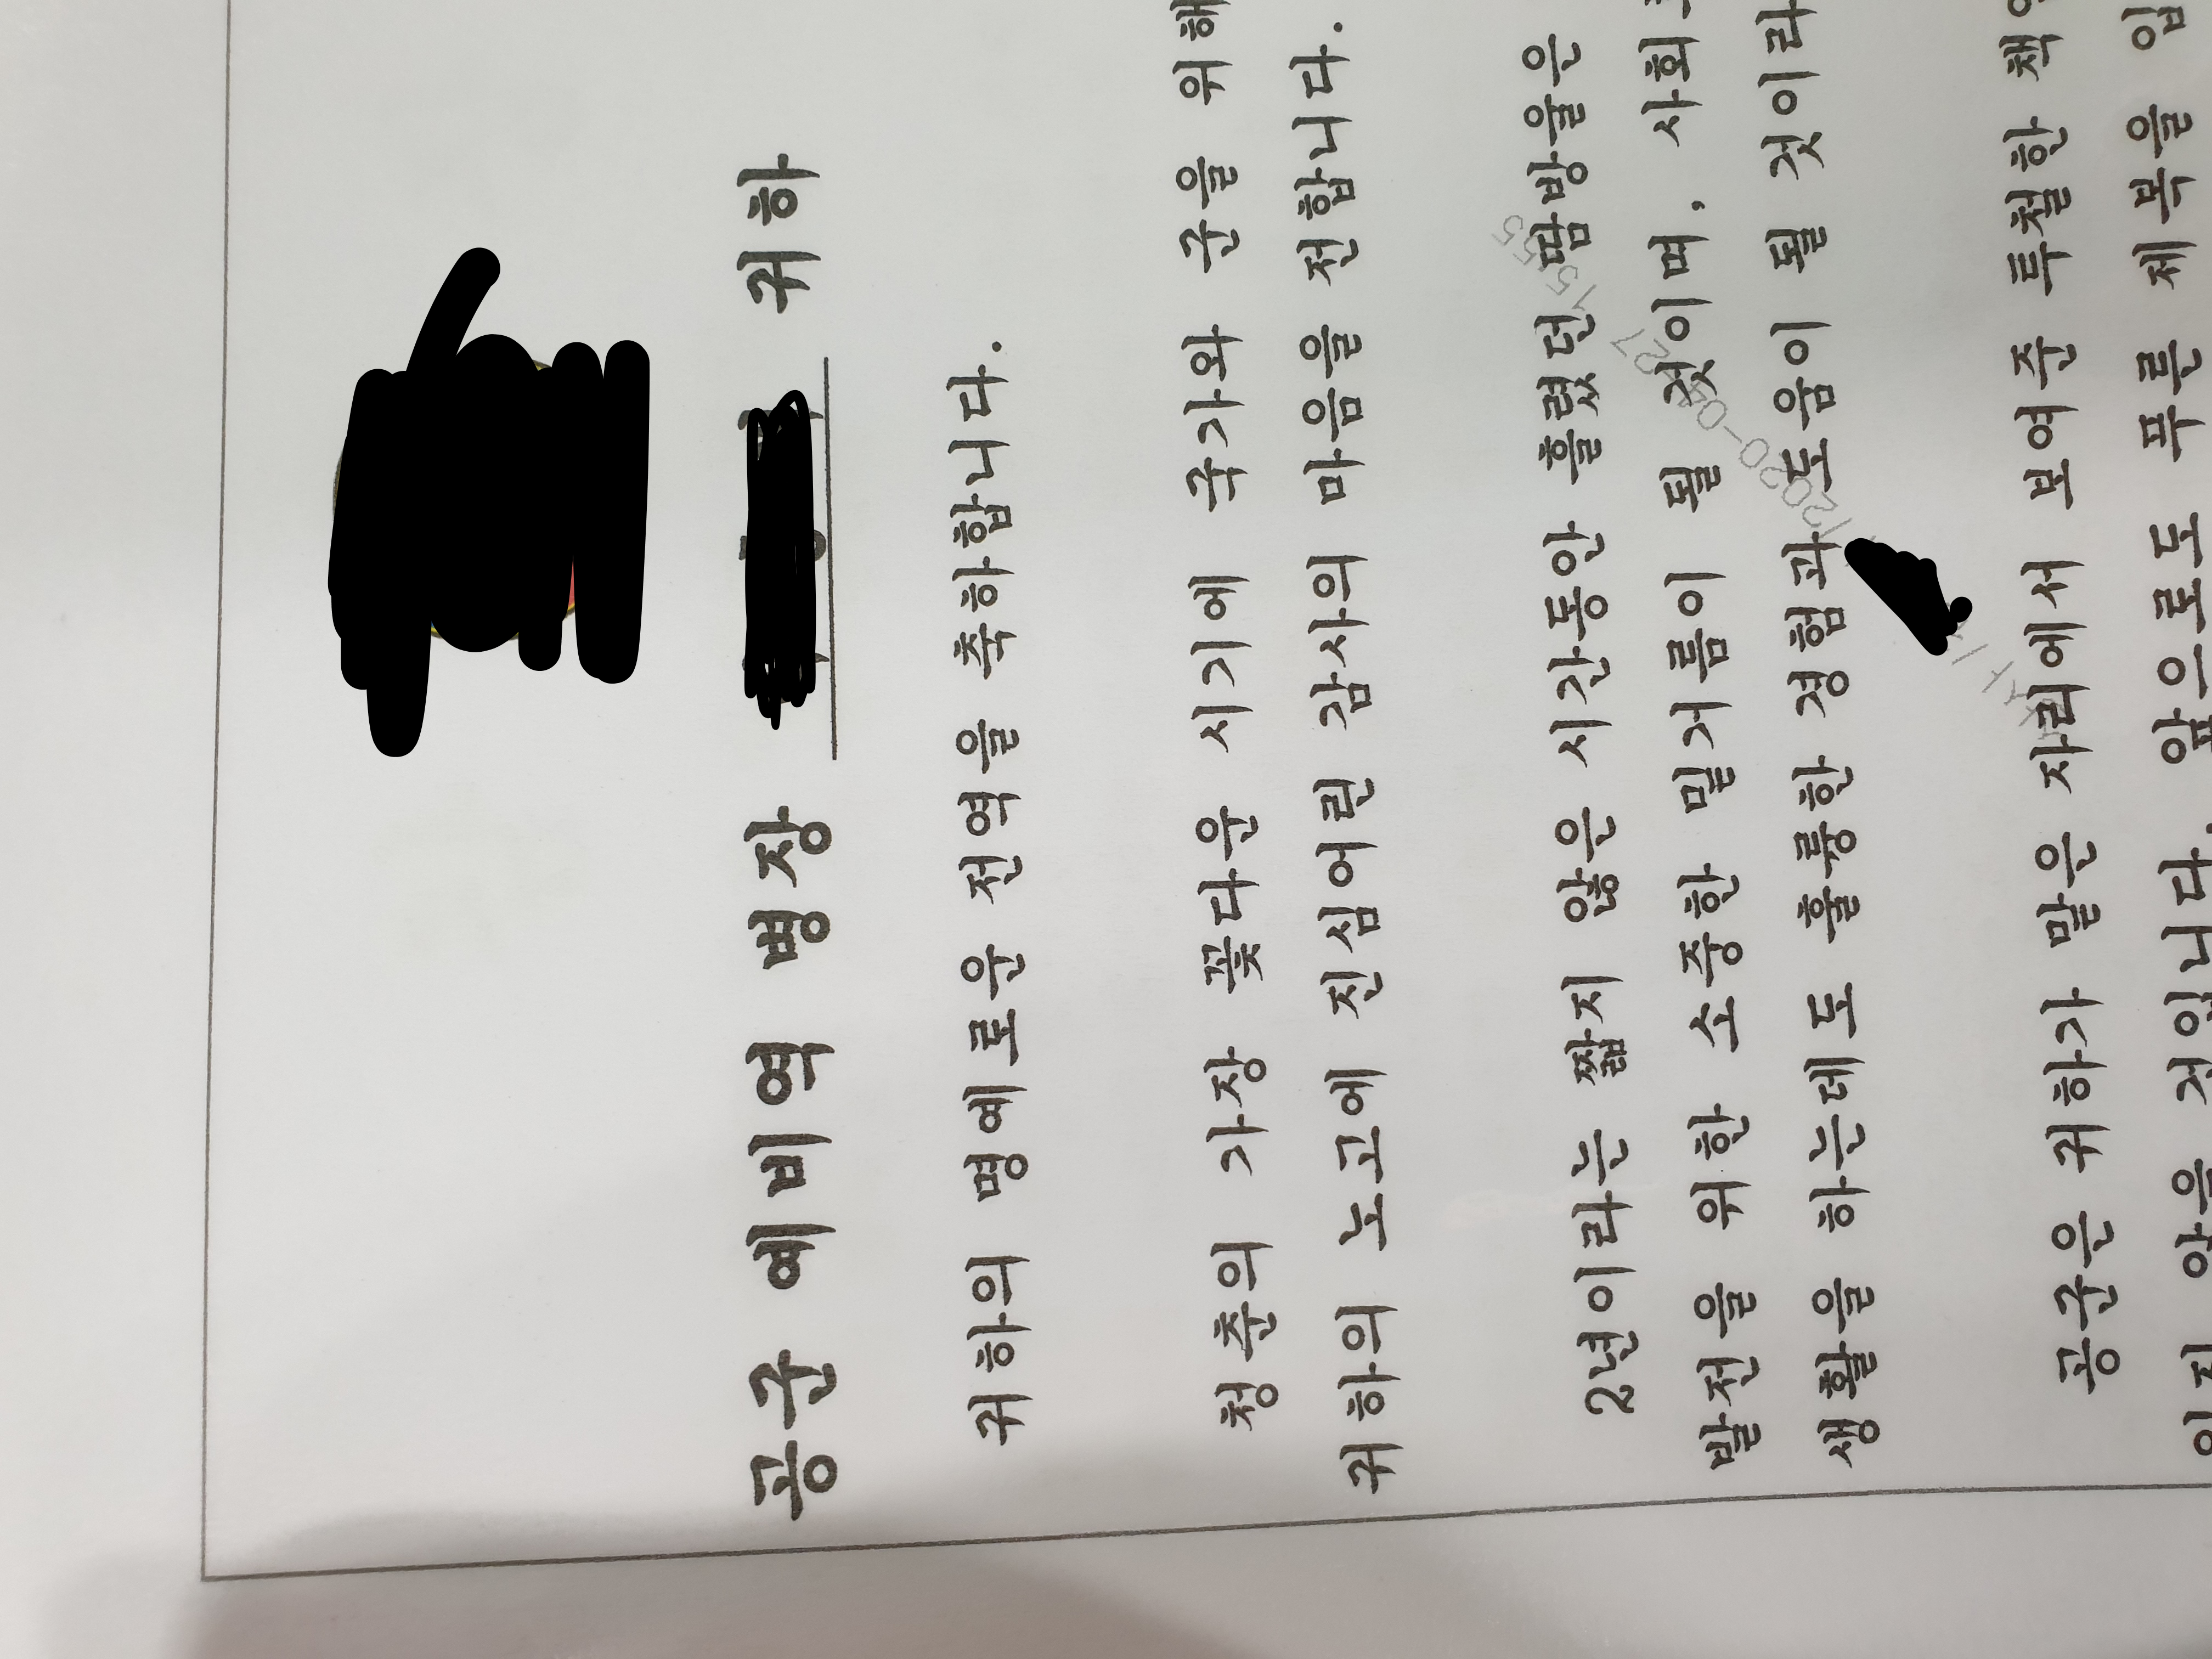 공군 예비역 병장 귀하
귀하의 명예로운 전역을 축하합니다.
청춘의 가장 꽃다운 시기에 국가와 군을 위해
귀하의 노고에 진심어린 감사의 마음을 전합니다.
2년이라는 짧지 않은 시간동안 흘렸던 땀방울은
발전을 위한 소중한 밑거름이 될 것이며, 사회
생활을 하는데도 훌륭한 경험과 도움이 될 것이라
공군은 귀하가 맡은 자리에서 보여준 투철한
않을 것입니다. 앞으로도 푸른 제복을 입